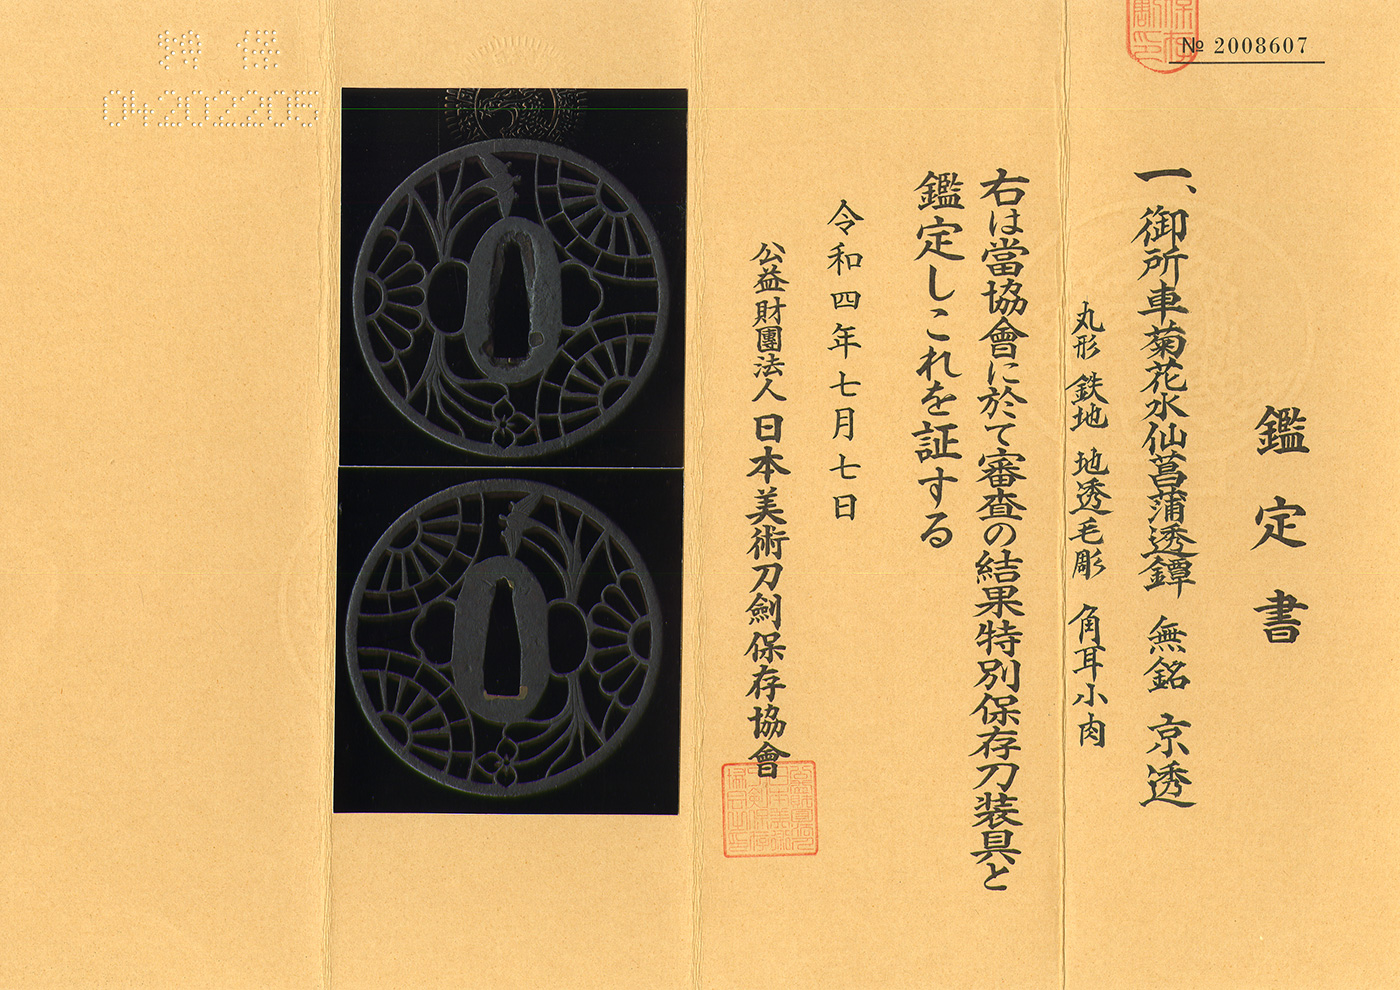 № 2008607
鑑定書
一、御所車菊花水仙菖蒲透鐔 無銘 京透
丸形 鉄地 地透毛彫 角耳小肉
右は當協會に於て審査の結果特別保存刀装具と
鑑定しこれを証する
令和四年七月七日
公益財團法人 日本美術刀劍保存協會
04202205